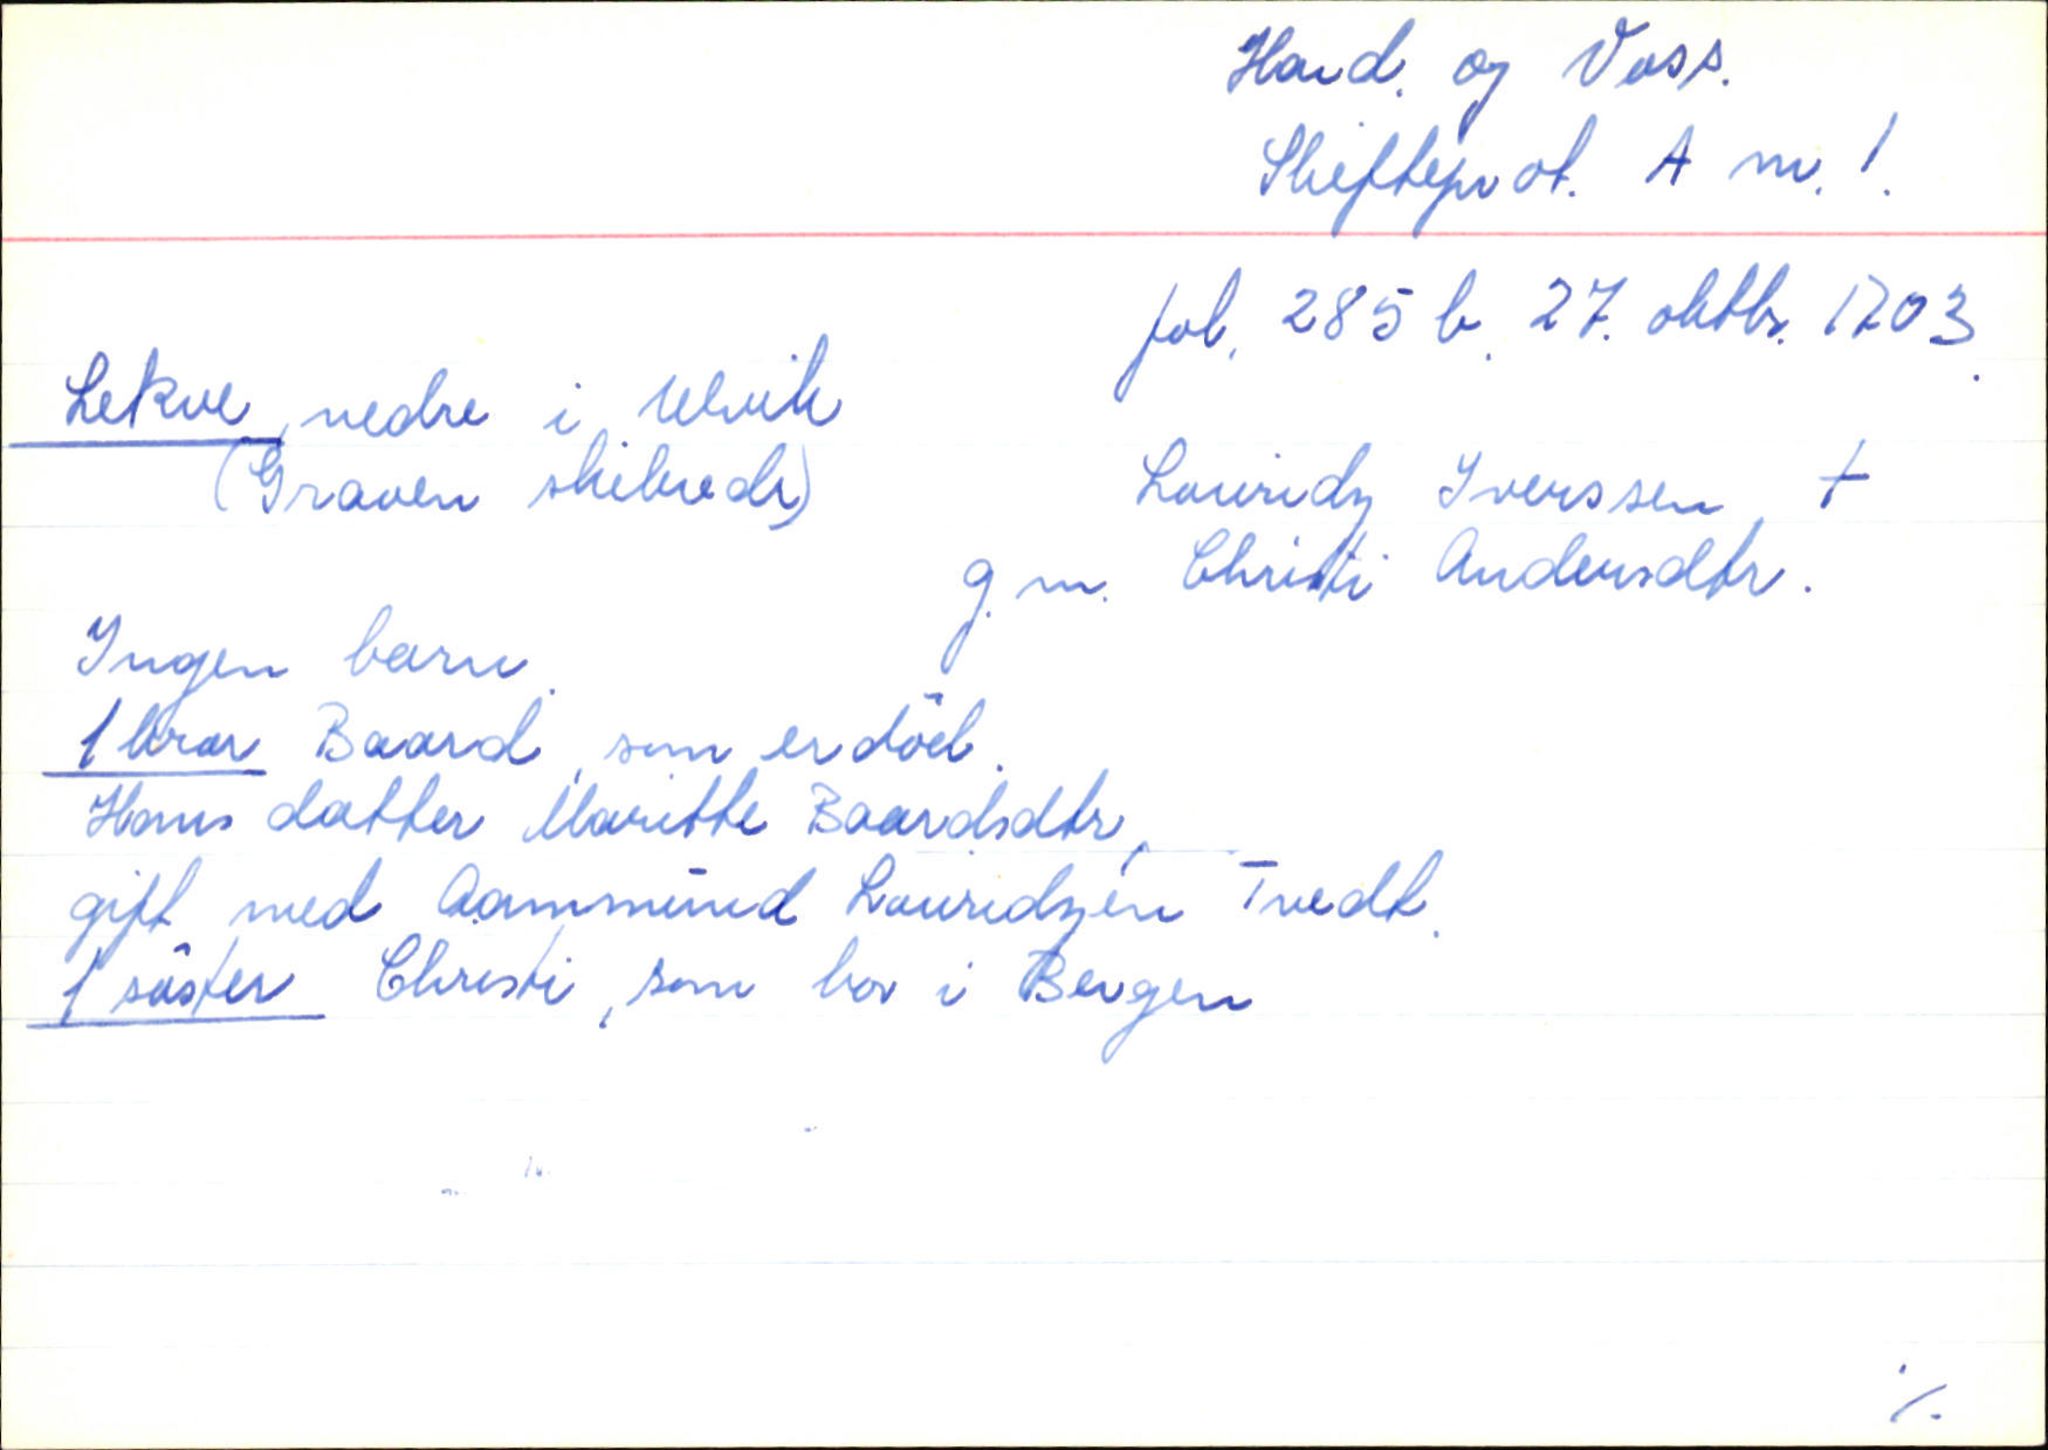 Hard. og Voss.
Skifteprot. A nr. 1.
fol. 285 b. 27. oktbr. 1703.
Lekve, nedre i Ulvik
(Graven skibrede)
Louridz Iverssen, +
g. m. Christi Andersdtr.
Ingen barn.
1 bror Baard, som er död.
Hans datter Maritte Baardsdtr,
gift med Aammund Louridzen Tvedt.
1 söster Christi, som bor i Bergen
./.